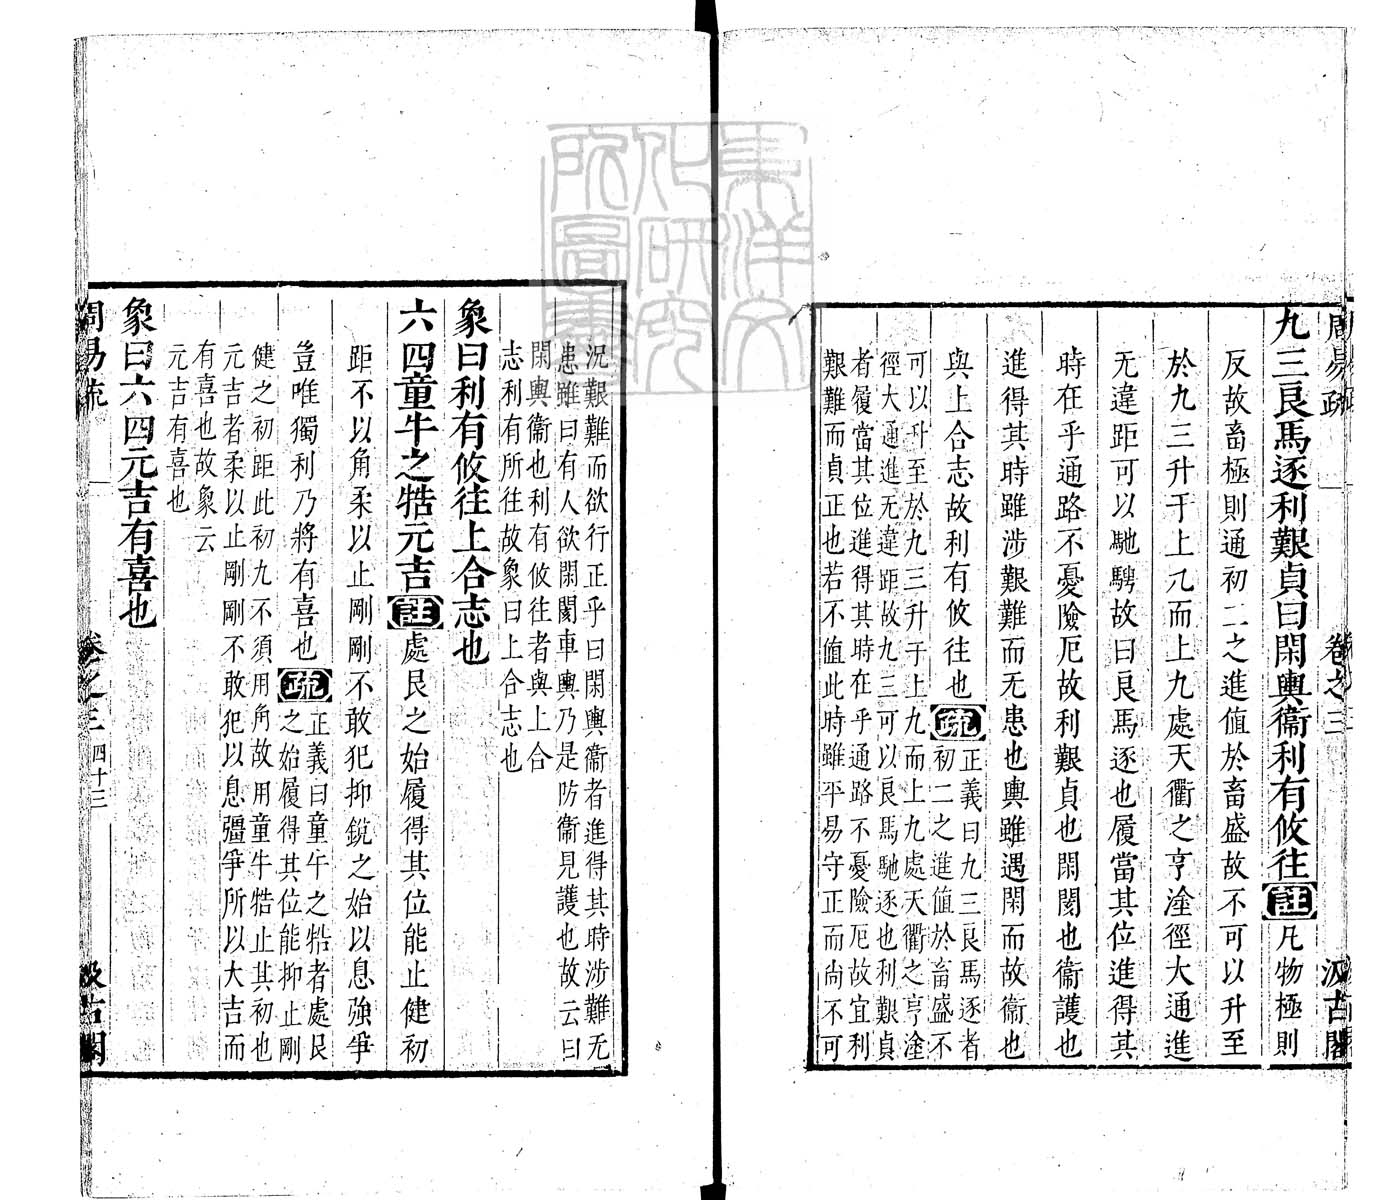 周易疏
卷之三
汲古閣
九三良馬逐利艱貞曰閑輿衞利有攸往註凡物極則
反故畜極則通初二之進值於畜盛故不可以升至
於九三升于上九而上九處天衢之亨塗徑大通進
无違距可以馳騁故曰良馬逐也履當其位進得其
時在乎通路不憂險厄故利艱貞也閑閡也衞護也
進得其時雖涉艱難而无患也輿雖遇閑而故衞也
與上合志故利有攸往也疏正義曰九三良馬逐者
初二之進值於畜盛不
可以升至於九三升于上九而上九處天衢之亨塗
徑大通進无違距故九三可以良馬馳逐也利艱貞
者履當其位進得其時在乎通路不憂險厄故宜利
艱難而貞正也若不值此時雖平易守正而尚不可
況艱難而欲行正乎曰閑輿衞者進得其時涉難无
患雖曰有人欲閑閡車輿乃是防衞見護也故云曰
閑輿衞也利有攸往者與上合
志利有所往故象曰上合志也
象曰利有攸往上合志也
六四童牛之牿元吉註處艮之始履得其位能止健初
距不以角柔以止剛剛不敢犯抑銳之始以息強爭
豈唯獨利乃將有喜也疏正義曰童牛之牿者處艮
之始履得其位能抑止剛
健之初距此初九不須用角故用童牛牿止其初也
元吉者柔以止剛剛不敢犯以息彊爭所以大吉而
有喜也故象云
元吉有喜也
象曰六四元吉有喜也
周易疏
卷之三
四十三
汲古閣